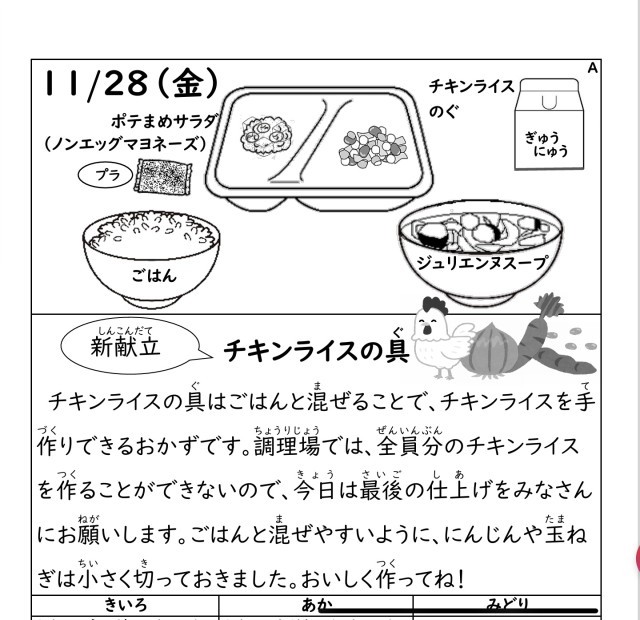 A
11/28（金）
チキンライス
のぐ
ポテまめサラダ
（ノンエッグマヨネーズ）
プラ
ぎゅう
にゅう
ごはん
ジュリエンヌスープ
しんこんだて
新献立
ぐ
チキンライスの具
ぐ ま て
チキンライスの具はごはんと混ぜることで、チキンライスを手
づく ちょうりじょう ぜんいんぶん
作りできるおかずです。調理場では、全員分のチキンライス
つく きょう さいご し あ
を作ることができないので、今日は最後の仕上げをみなさん
ねが ま たま
にお願いします。ごはんと混ぜやすいように、にんじんや玉ね
ちい き つく
ぎは小さく切っておきました。おいしく作ってね！
きいろ あか みどり